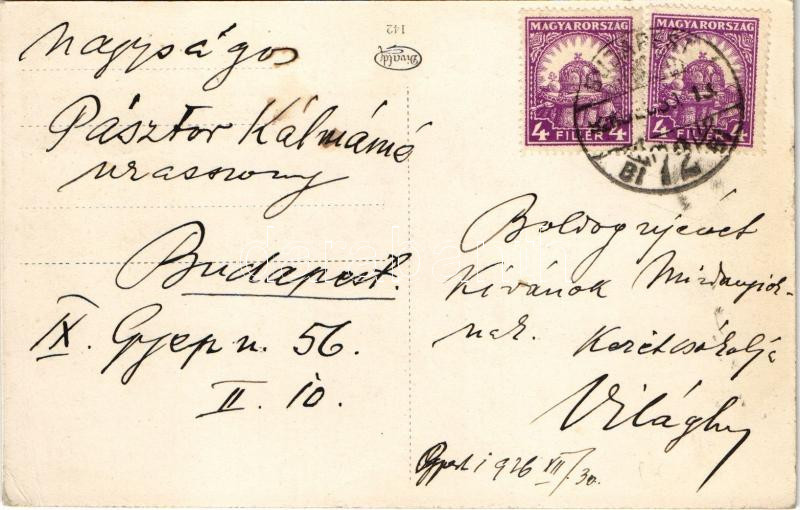 Nagyságos
Pásztor Kálmánné
urasszony
Budapest.
IX. Gyep u. 56.
II. 10.
Divald
142
MAGYARORSZÁG
4 FILLÉR 4
MAGYARORSZÁG
4 FILLÉR 4
BUDAPEST
72
Boldog ujévet
Kívánok Mindanyiok-
nak.
Kezét csókolja
Világhy
1926 XII/30.